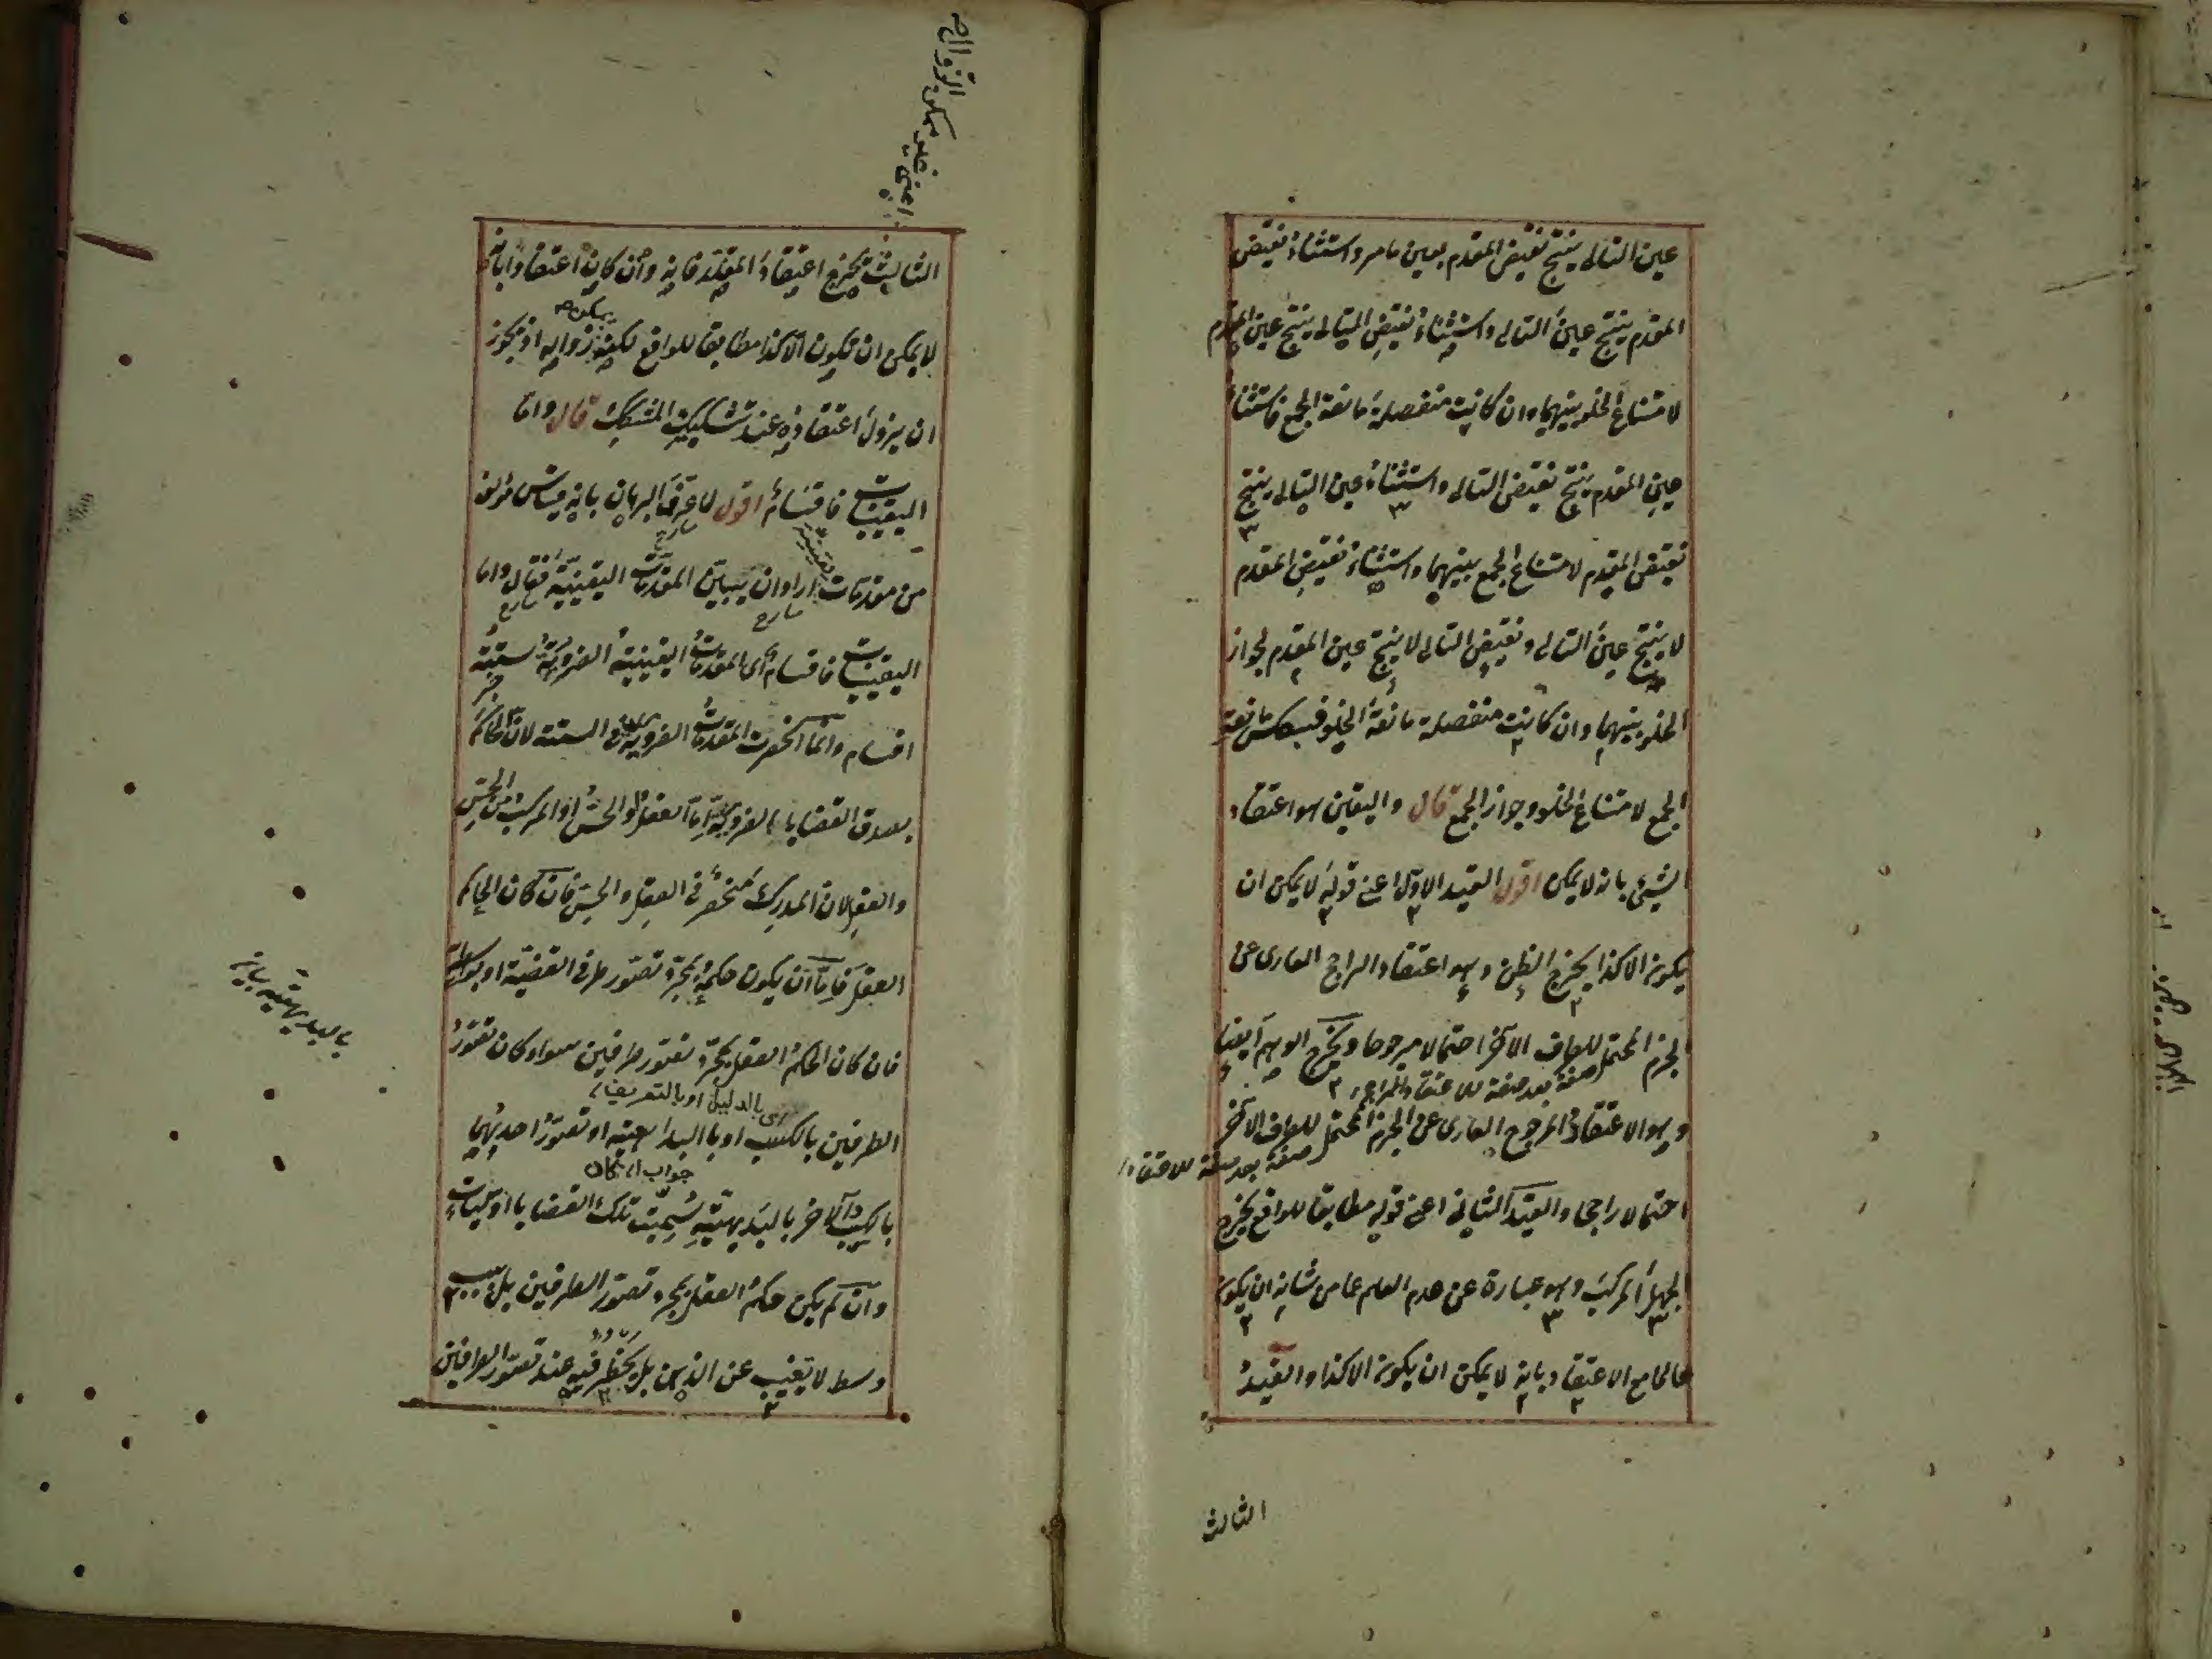 عين التالى ينتج نقيض المقدم بعين ما مر واستثناء نقيض
المقدم ينتج عين التالى واستثناء نقيض التالى ينتج عين المقدم
لامتناع الخلو بينهما وان كانت منفصلة مانعة الجمع فاستثناء
عين المقدم ينتج نقيض التالى واستثناء عين التالى ينتج
نقيض المقدم لامتناع الجمع بينهما واستثناء نقيض المقدم
لا ينتج عين التالى ونقيض التالى لا ينتج عين المقدم لجواز
الخلو بينهما وان كانت منفصلة مانعة الخلو فبعكس مانعة
الجمع لامتناع الخلو وجواز الجمع قال واليقين هو اعتقاد
الشيئ بانه لا يمكن اقول القيد الاول اعنى قوله لا يمكن ان
يكون الا كذا يخرج الظن وهو اعتقاد الراجح العارى عن
الجزم المحتمل للطرف الآخر احتمالا مرجوحا ويخرج الوهم ايضا
صفة بعد صفة للاعتقاد الراجح
وهو الاعتقاد المرجوح العارى عن الجزم المحتمل للطرف الآخر
صفة بعد صفة للاعتقاد
احتمالا راجحا والقيد الثانى اعنى قوله مطابقا للواقع يخرج
الجهل المركب وهو عبارة عن عدم العلم عما من شانه ان يكون
عالما مع الاعتقاد بانه لا يمكن ان يكون الا كذا والقيد
الثالث
اعنى غير ممكن الزوال
الثالث يخرج اعتقاد المقلد فانه وان كان اعتقادا بانه
لا يمكن ان يكون الا كذا مطابقا للواقع لكنه زواله اذ يجوز
ان يزول اعتقاده عند تشكيك المشكك قال واما
اليقينيات فاقسام اقول لما عرف البرهان بانه قياس مؤلف
من مقدمات يقينية اراد ان يبين المقدمات اليقينية فقال واما
اليقينيات فاقسام اى المقدمات اليقينية الضرورية ستة
اقسام وانما انحصرت المقدمات الضرورية فى الستة لان الحاكم
بصدق القضايا الضرورية اما العقل او الحس او المركب من الحس
والعقل لان المدرك منحصر فى العقل والحس فان كان الحاكم
العقل فاما ان يكون حكمه بمجرد تصور طرفى القضية او بواسطة
فان كان الحكم العقل بمجرد تصور طرفين سواء كان تصور
اى بالدليل او بالتعريف
الطرفين بالكسب او بالبداهة او تصور احديهما
جواب ان كان
بالكسب والآخر بالبديهية سميت تلك القضايا اوليات
وان لم يكن حكم العقل بمجرد تصور الطرفين بل بسبب
وسط لا تغيب عن الذهن بل يخطر فيه عند تصور الطرفين